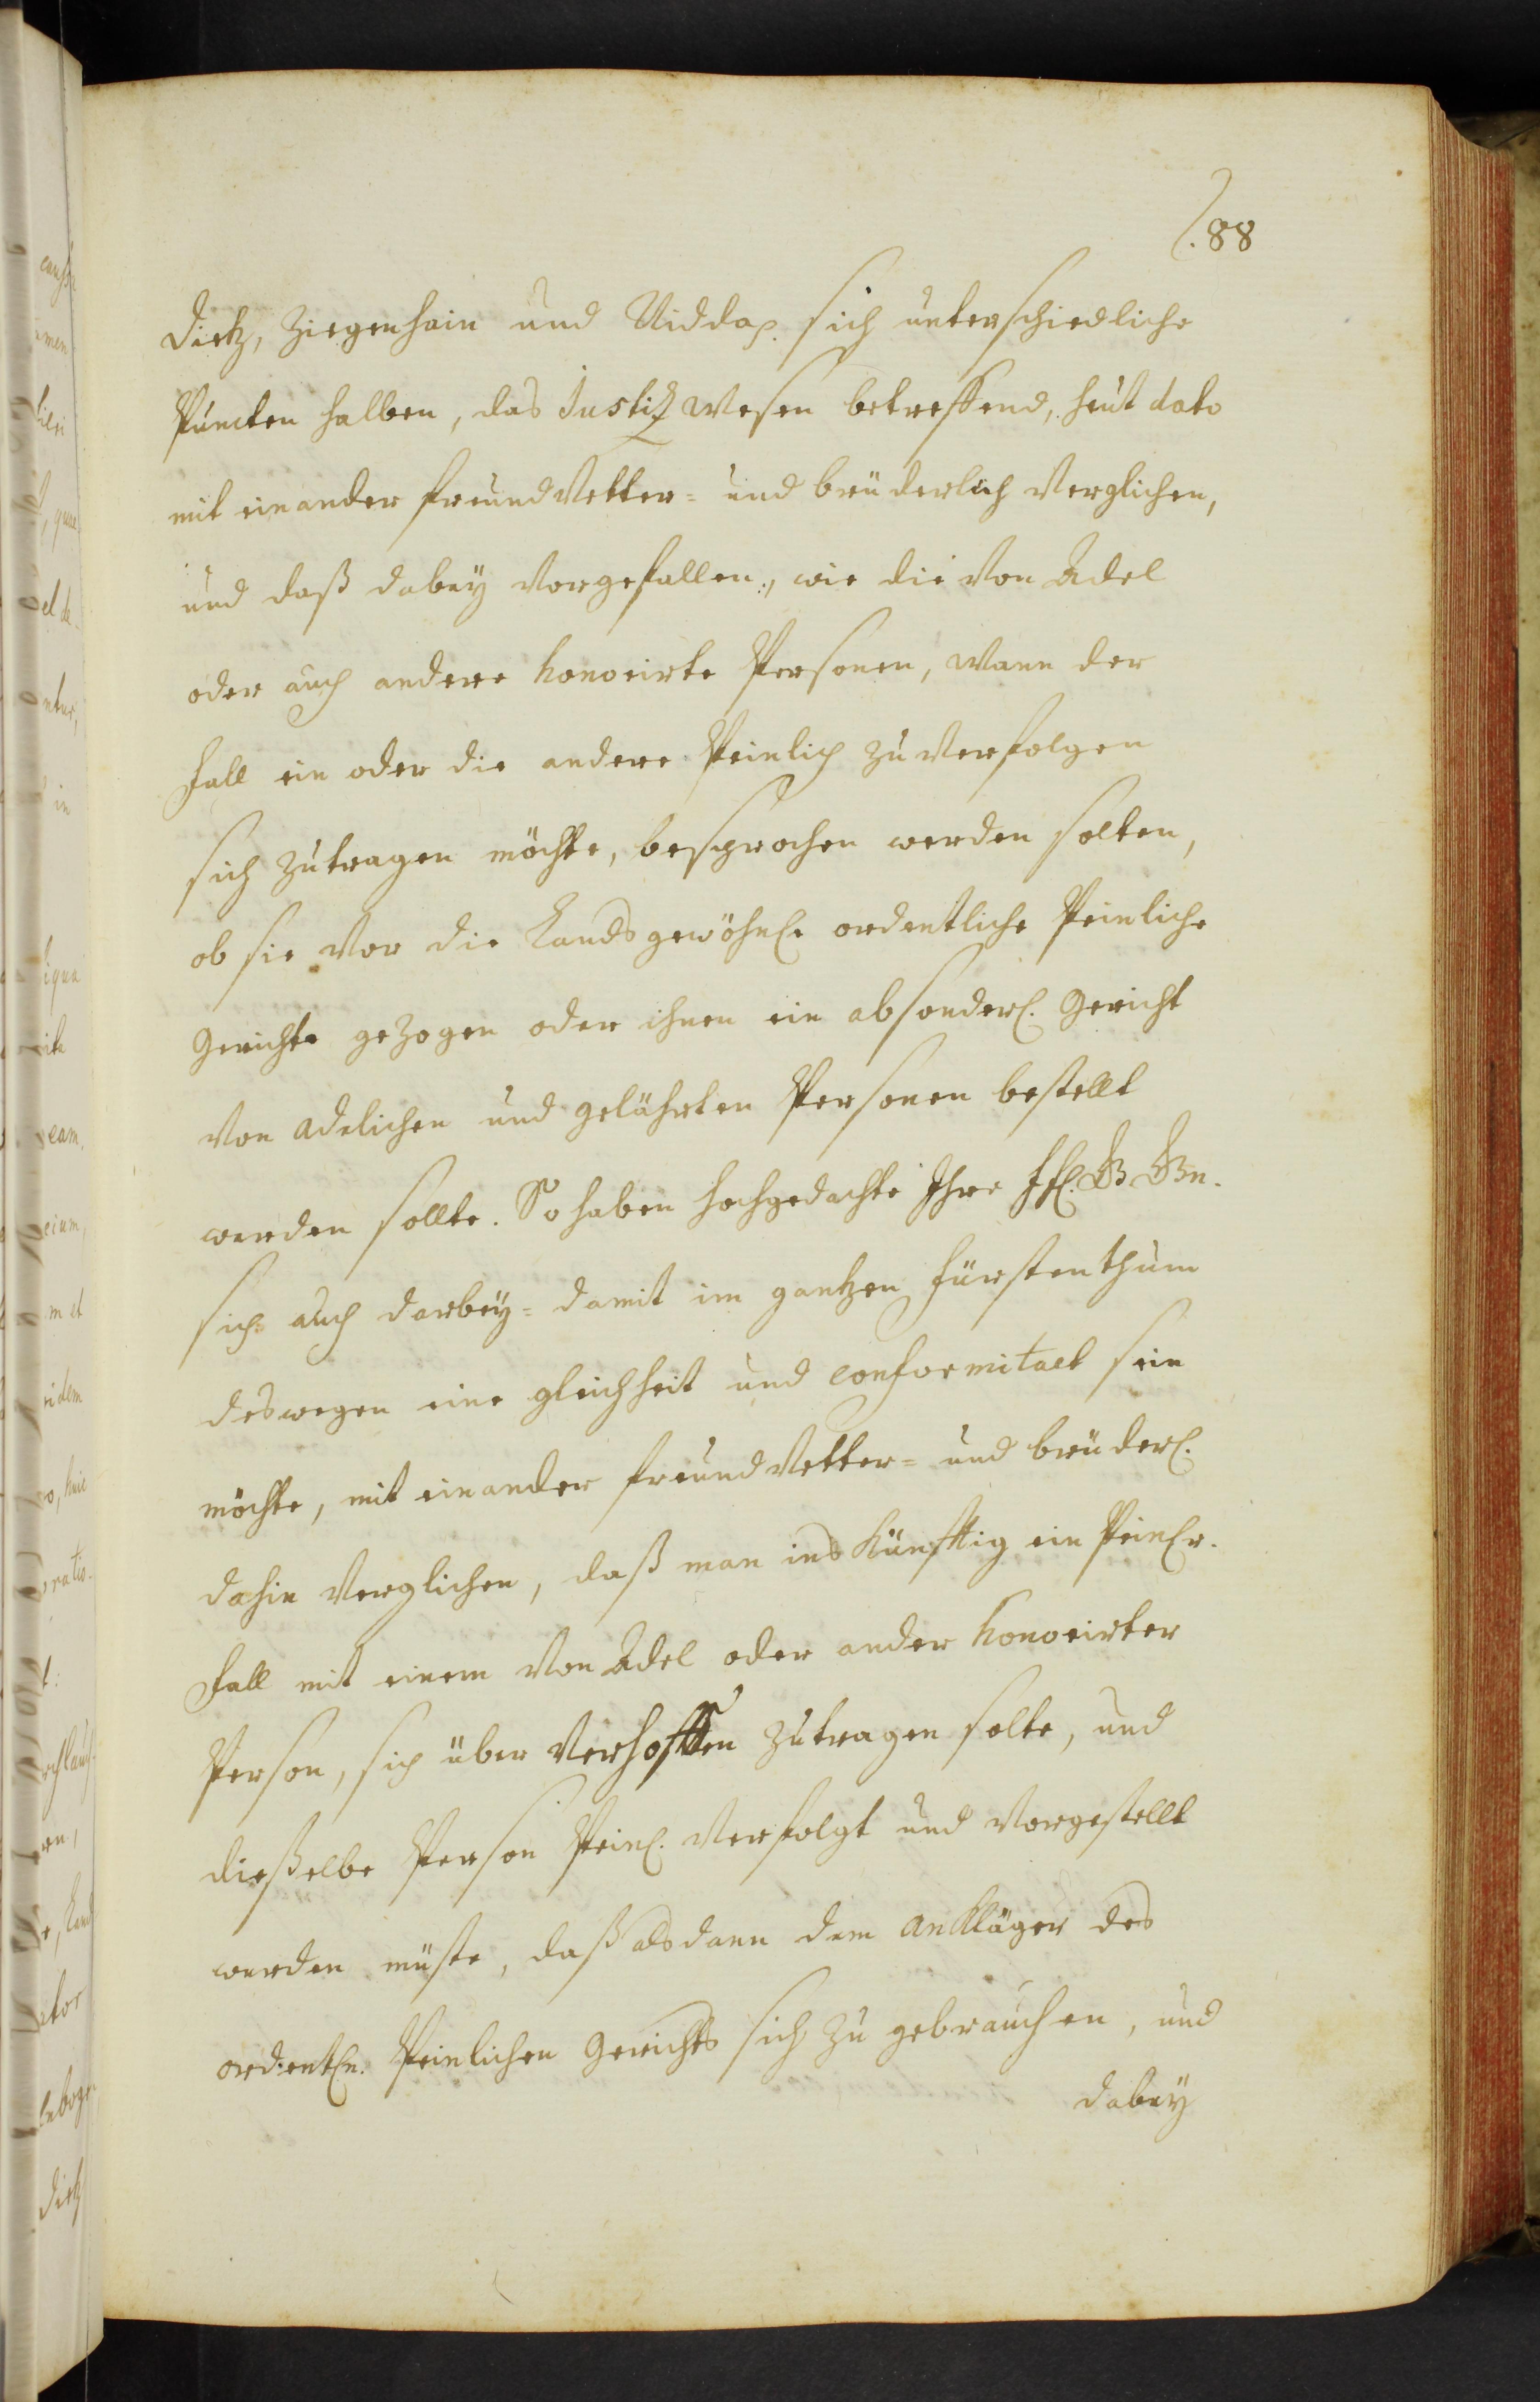 88
Dietz, Ziegenhain und Nidda p. sich unterschiedliche
Puncten halben, das Justitz Wesen betreffend, heut dato
mit einander freund Vetter= und brüderlich Verglichen,
und daß dabey Vorgefallen, wie die Von Adel
oder auch andere honorirte Personen, Wann der
Fall ein oder die andere Peinlich zu Verfolgen
sich zutragen möchte, besprochen werden solten,
ob sie Vor die Lands gewöhnl. ordentliche Peinliche
Gerichte gezogen oder ihnen ein absonderl. Gericht
Von adelichen und gelährten Personen bestellt
werden sollte. So haben hochgedachte Ihre ffl. G Gn.
sich auch darbey= damit im gantzen Fürstenthum
deswegen eine gleichheit und conformitaet sein
möchte, mit einander freund Vetter= und brüderl.
dahin Verglichen, daß man ins Künfftig ein Peinlr.
Fall mit einem Von Adel oder ander honorirter
Person, sich über Verhoffen zutragen solte, und
dießelbe Person Peinl. Verfolgt und Vorgestellt
werden müste, daß alsdann dem Ankläger des
ordentln. Peinlichen Gerichts sich zu gebrauchen, und
dabey